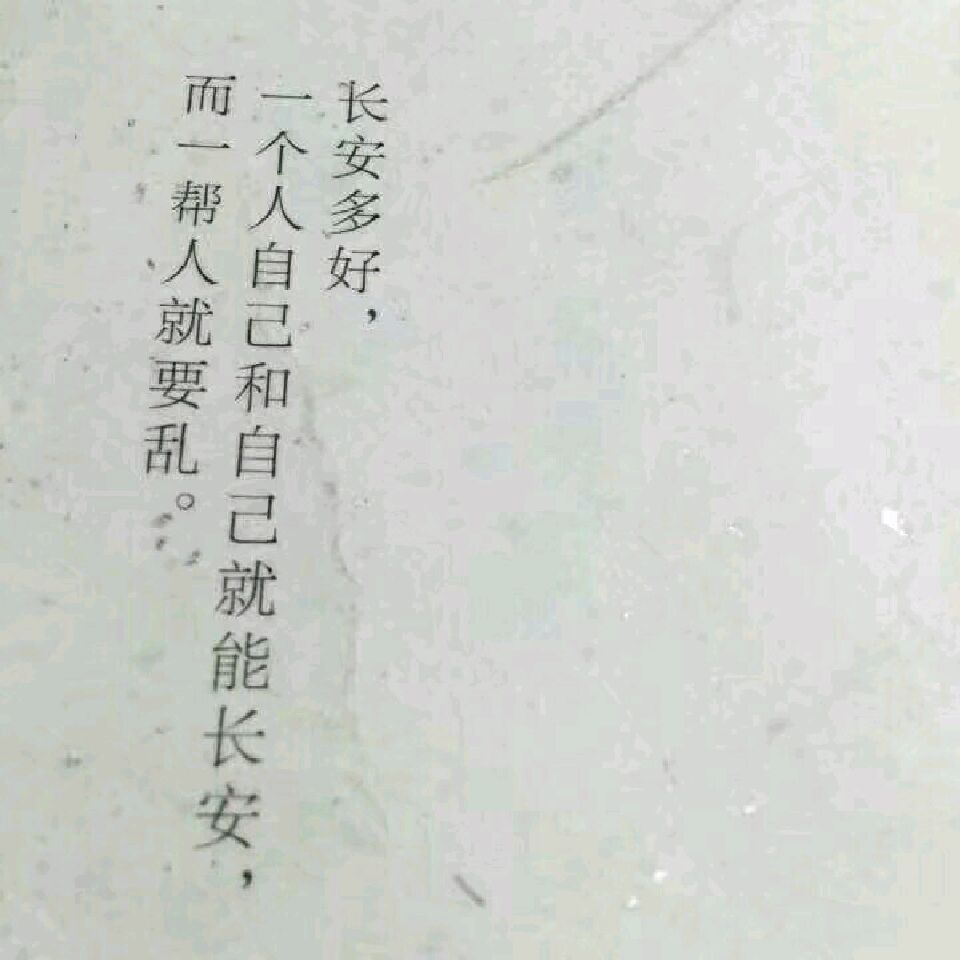 长安多好，
一个人自己和自己就能长安，
而一帮人就要乱。